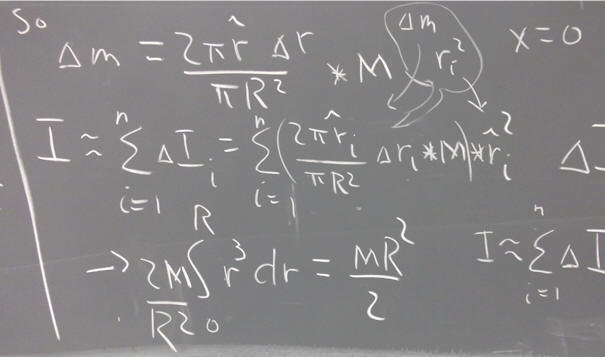 So
Δm = 2π r̂ Δr / πR² * M
Δm r_i²
x=0
I ≈ Σ_{i=1}^{n} ΔI_i = Σ_{i=1}^{n} (2π r̂_i / πR² Δr_i * M) * r̂_i²
Δ
→ 2M/R² ∫_0^R r³ dr = MR²/2
I ≈ Σ_{i=1}^{n} ΔI